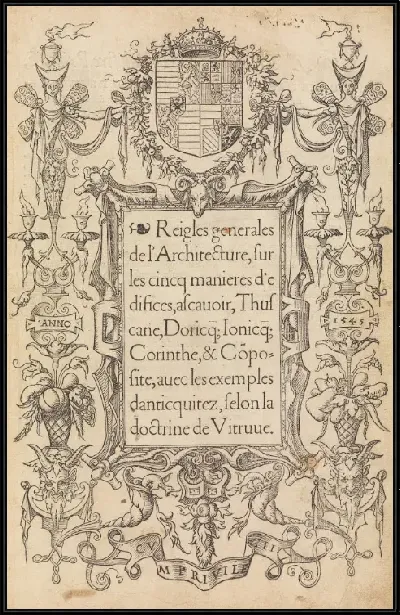 Reigles generales
de l'Architecture, sur
les cincq manieres d'e
difices, ascavoir, Thus
cane, Doricq; Ionicq;
Corinthe, & Cõpo-
site, avec les exemples
danticquitez, selon la
doctrine de Vitruve.
ANNO
1545
CVM PRIVILEGII